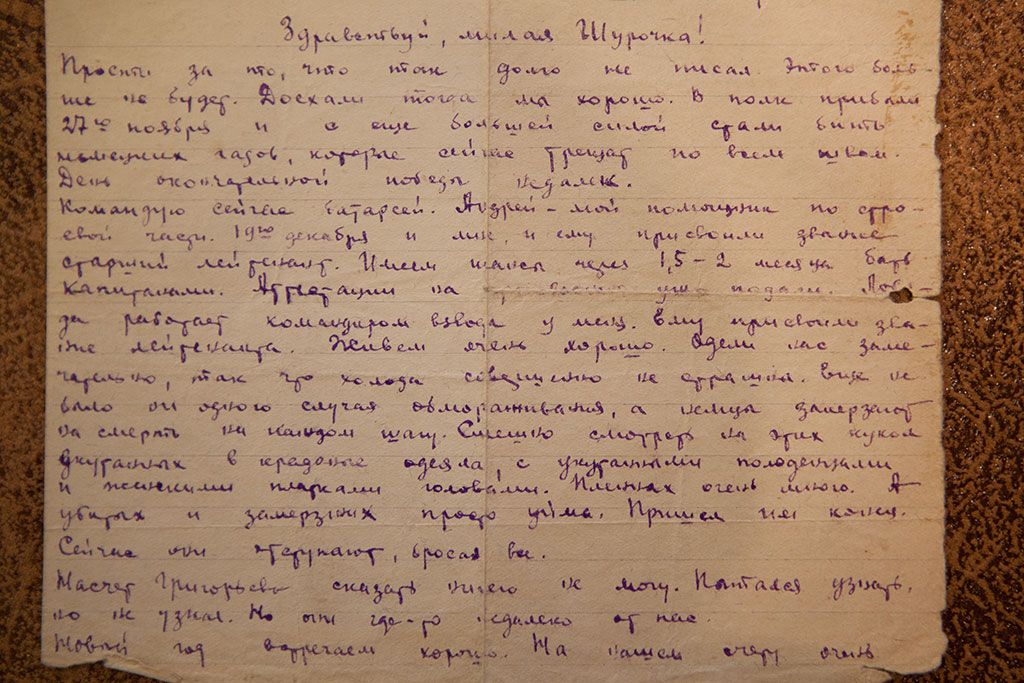 Здравствуй, милая Шурочка!
Прости за то, что так долго не писал. Этого боль-
ше не будет. Доехали тогда мы хорошо. В полк прибыли
27го ноября и с еще большей силой стали бить
немецких гадов, которые сейчас трещат по всем швам.
День окончательной победы недалек.
Командую сейчас батареей. Андрей – мой помощник по стро-
евой части. 19го декабря и мне, и ему присвоили звание
старший лейтенант. Имеем шансы через 1,5 – 2 месяца быть
капитанами. Аттестации на уже подали.
да работает командиром взвода у меня. Ему присвоили зва-
ние лейтенанта. Живем очень хорошо. Одели нас заме-
чательно, так что холода совершенно не страшны. Еще не
было ни одного случая обмораживания, а немцы замерзают
на смерть на каждом шагу. Смешно смотреть на этих кукол
укутанных в краденые одеяла, с укутанными полотенцами
и женскими платками головами. Пленных очень много. А
убитых и замерзших просто уйма. Пришел им конец.
Сейчас они отступают, бросая все.
Насчет Григорьева сказать ничего не могу. Пытался узнать,
но не узнал. Но они где-то недалеко от нас.
Новый год встречаем хорошо. На нашем счету очень